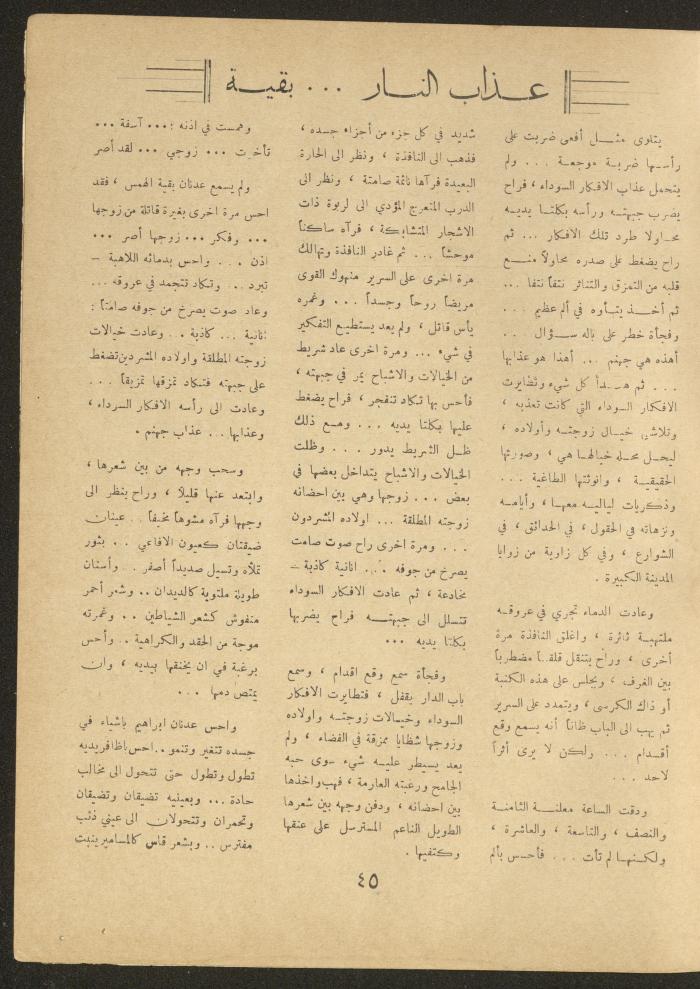 عذاب النار ... بقية
يتلوى مثل أفعى ضربت على
رأسها ضربة موجعة ... ولم
يتحمل عذاب الافكار السوداء ، فراح
يضرب جبهته ورأسه بكلتا يديه
محاولا طرد تلك الافكار ... ثم
راح يضغط على صدره محاولاً منع
قلبه من التمزق والتناثر نتفاً نتفا ...
ثم أخذ يتأوه في ألم عظيم ...
وفجأة خطر على باله سؤال ...
أهذه هي جهنم ... أهذا هو عذابها
... ثم هدأ كل شيء وتطايرت
الافكار السوداء التي كانت تعذبه ،
وتلاشى خيال زوجته وأولاده ،
ليحل محله خيالها هي ، وصورتها
الحقيقية ، وانوثتها الطاغية ...
وذكريات لياليه معها ، وأيامه
ونزهاته في الحقول ، في الحدائق ، في
الشوارع ، وفي كل زاوية من زوايا
المدينة الكبيرة .
وعادت الدماء تجري في عروقه
ملتهبة ثائرة ، واغلق النافذة مرة
أخرى ، وراح يتنقل قلقاً مضطرباً
بين الغرف ، ويجلس على هذه الكنبة
أو ذاك الكرسي ، ويتمدد على السرير
ثم يهب الى الباب ظاناً أنه يسمع وقع
أقدام ... ولكن لا يرى أثراً
لاحد ...
ودقت الساعة معلنة الثامنة
والنصف ، والتاسعة ، والعاشرة ،
ولكنها لم تأت ... فأحس بألم
شديد في كل جزء من أجزاء جسده ،
فذهب الى النافذة ، ونظر الى الحارة
البعيدة فرآها نائمة صامتة ، ونظر الى
الدرب المنعرج المؤدي الى لربوة ذات
الاشجار المتشابكة ، فرآه ساكناً
موحشاً ... ثم غادر النافذة وتهالك
مرة اخرى على السرير منهوك القوى
مريضاً روحاً وجسداً ... وغمره
يأس قاتل ، ولم يعد يستطيع التفكير
في شيء ... ومرة اخرى عاد شريط
من الخيالات والاشباح يمر في جبهته ،
فأحس بها تكاد تنفجر ، فراح يضغط
عليها بكلتا يديه ... ومع ذلك
ظل الشريط يدور ... وظلت
الخيالات والاشباح يتداخل بعضها في
بعض ... زوجها وهي بين احضانه
زوجته المطلقة ... اولاده المشردون
... ومرة اخرى راح صوت صامت
يصرخ من جوفه ... انانية كاذبة –
مخادعة ، ثم عادت الافكار السوداء
تتسلل الى جبهته فراح يضربها
بكلتا يديه ...
وفجأة سمع وقع اقدام ، وسمع
باب الدار يقفل ، فتطايرت الافكار
السوداء وخيالات زوجته واولاده
وزوجها شظايا ممزقة في الفضاء ، ولم
يعد يسيطر عليه شيء سوى حبه
الجامح ورغبته العارمة ، فهب واخذها
بين احضانه ، ودفن وجهه بين شعرها
الطويل الناعم المسترسل على عنقها
وكتفيها .
وهمست في اذنه ؛... آسفة ...
تأخرت ... زوجي ... لقد أصر
ولم يسمع عدنان بقية الهمس ، فقد
احس مرة اخرى بغيرة قاتلة من زوجها
... وفكر ... زوجها أصر ...
اذن ... واحس بدمائه اللاهبة –
تبرد .. وتكاد تتجمد في عروقه ...
وعاد صوت يصرخ من جوفه صامتاً :
انانية ... كاذبة .. وعادت خيالات
زوجته المطلقة واولاده المشردين تضغط
على جبهته فتكاد تمزقها تمزيقاً ...
وعادت الى رأسه الافكار السوداء ،
وعذابها ... عذاب جهنم .
وسحب وجهه من بين شعرها ،
وابتعد عنها قليلاً ، وراح ينظر الى
وجهها فرآه مشوهاً مخيفاً .. عينان
ضيقتان كعيون الافاعي .. بثور
تملأه وتسيل صديداً أصفر .. وأسنان
طويلة ملتوية كالديدان .. وشعر أحمر
منفوش كشعر الشياطين .. وغمرته
موجة من الحقد والكراهية .. وأحس
برغبة في ان يخنقها بيديه ، وان
يمتص دمها ...
واحس عدنان ابراهيم باشياء في
جسده تتغير وتنمو .. احس باظافر يديه
تطول وتطول حتى تتحول الى مخالب
حادة ... وبعينيه تضيقان وتضيقان
وتحمران وتتحولان الى عيني ذئب
مفترس .. وبشعر قاس كالمسامير ينبت
٤٥